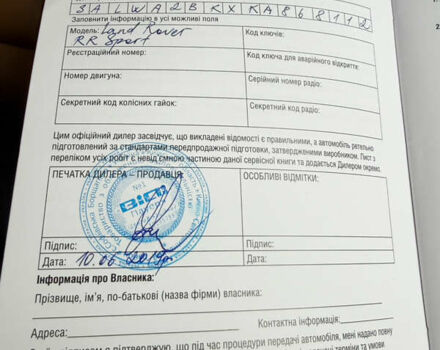 SALWA2BKXKA868112
Заповнити інформацію в усі можливі поля
Модель: Land Rover
RR Sport
Код ключів:
Реєстраційний номер:
Код ключа для аварійного відкриття:
Номер двигуна:
Серійний номер радіо:
Секретний код колісних гайок:
Секретний код радіо:
Цим офіційний дилер засвідчує, що викладені відомості є правильними, а автомобіль ретельно
підготовлений за стандартами передпродажної підготовки, затвердженими виробником. Лист з
переліком усіх робіт є невід'ємною частиною даної сервісної книги та додається Дилером окремо.
ПЕЧАТКА ДИЛЕРА – ПРОДАВЦЯ:
ОСОБЛИВІ ВІДМІТКИ:
№1
Підпис:
Підпис:
Дата: 10.06.2019р.
Дата:
Інформація про Власника:
Прізвище, ім'я, по-батькові (назва фірми) власника:
Адреса:
Контактна інформація:
підтверджую, що під час процедури передачі автомобіля, мені надано повну
терміни та умови